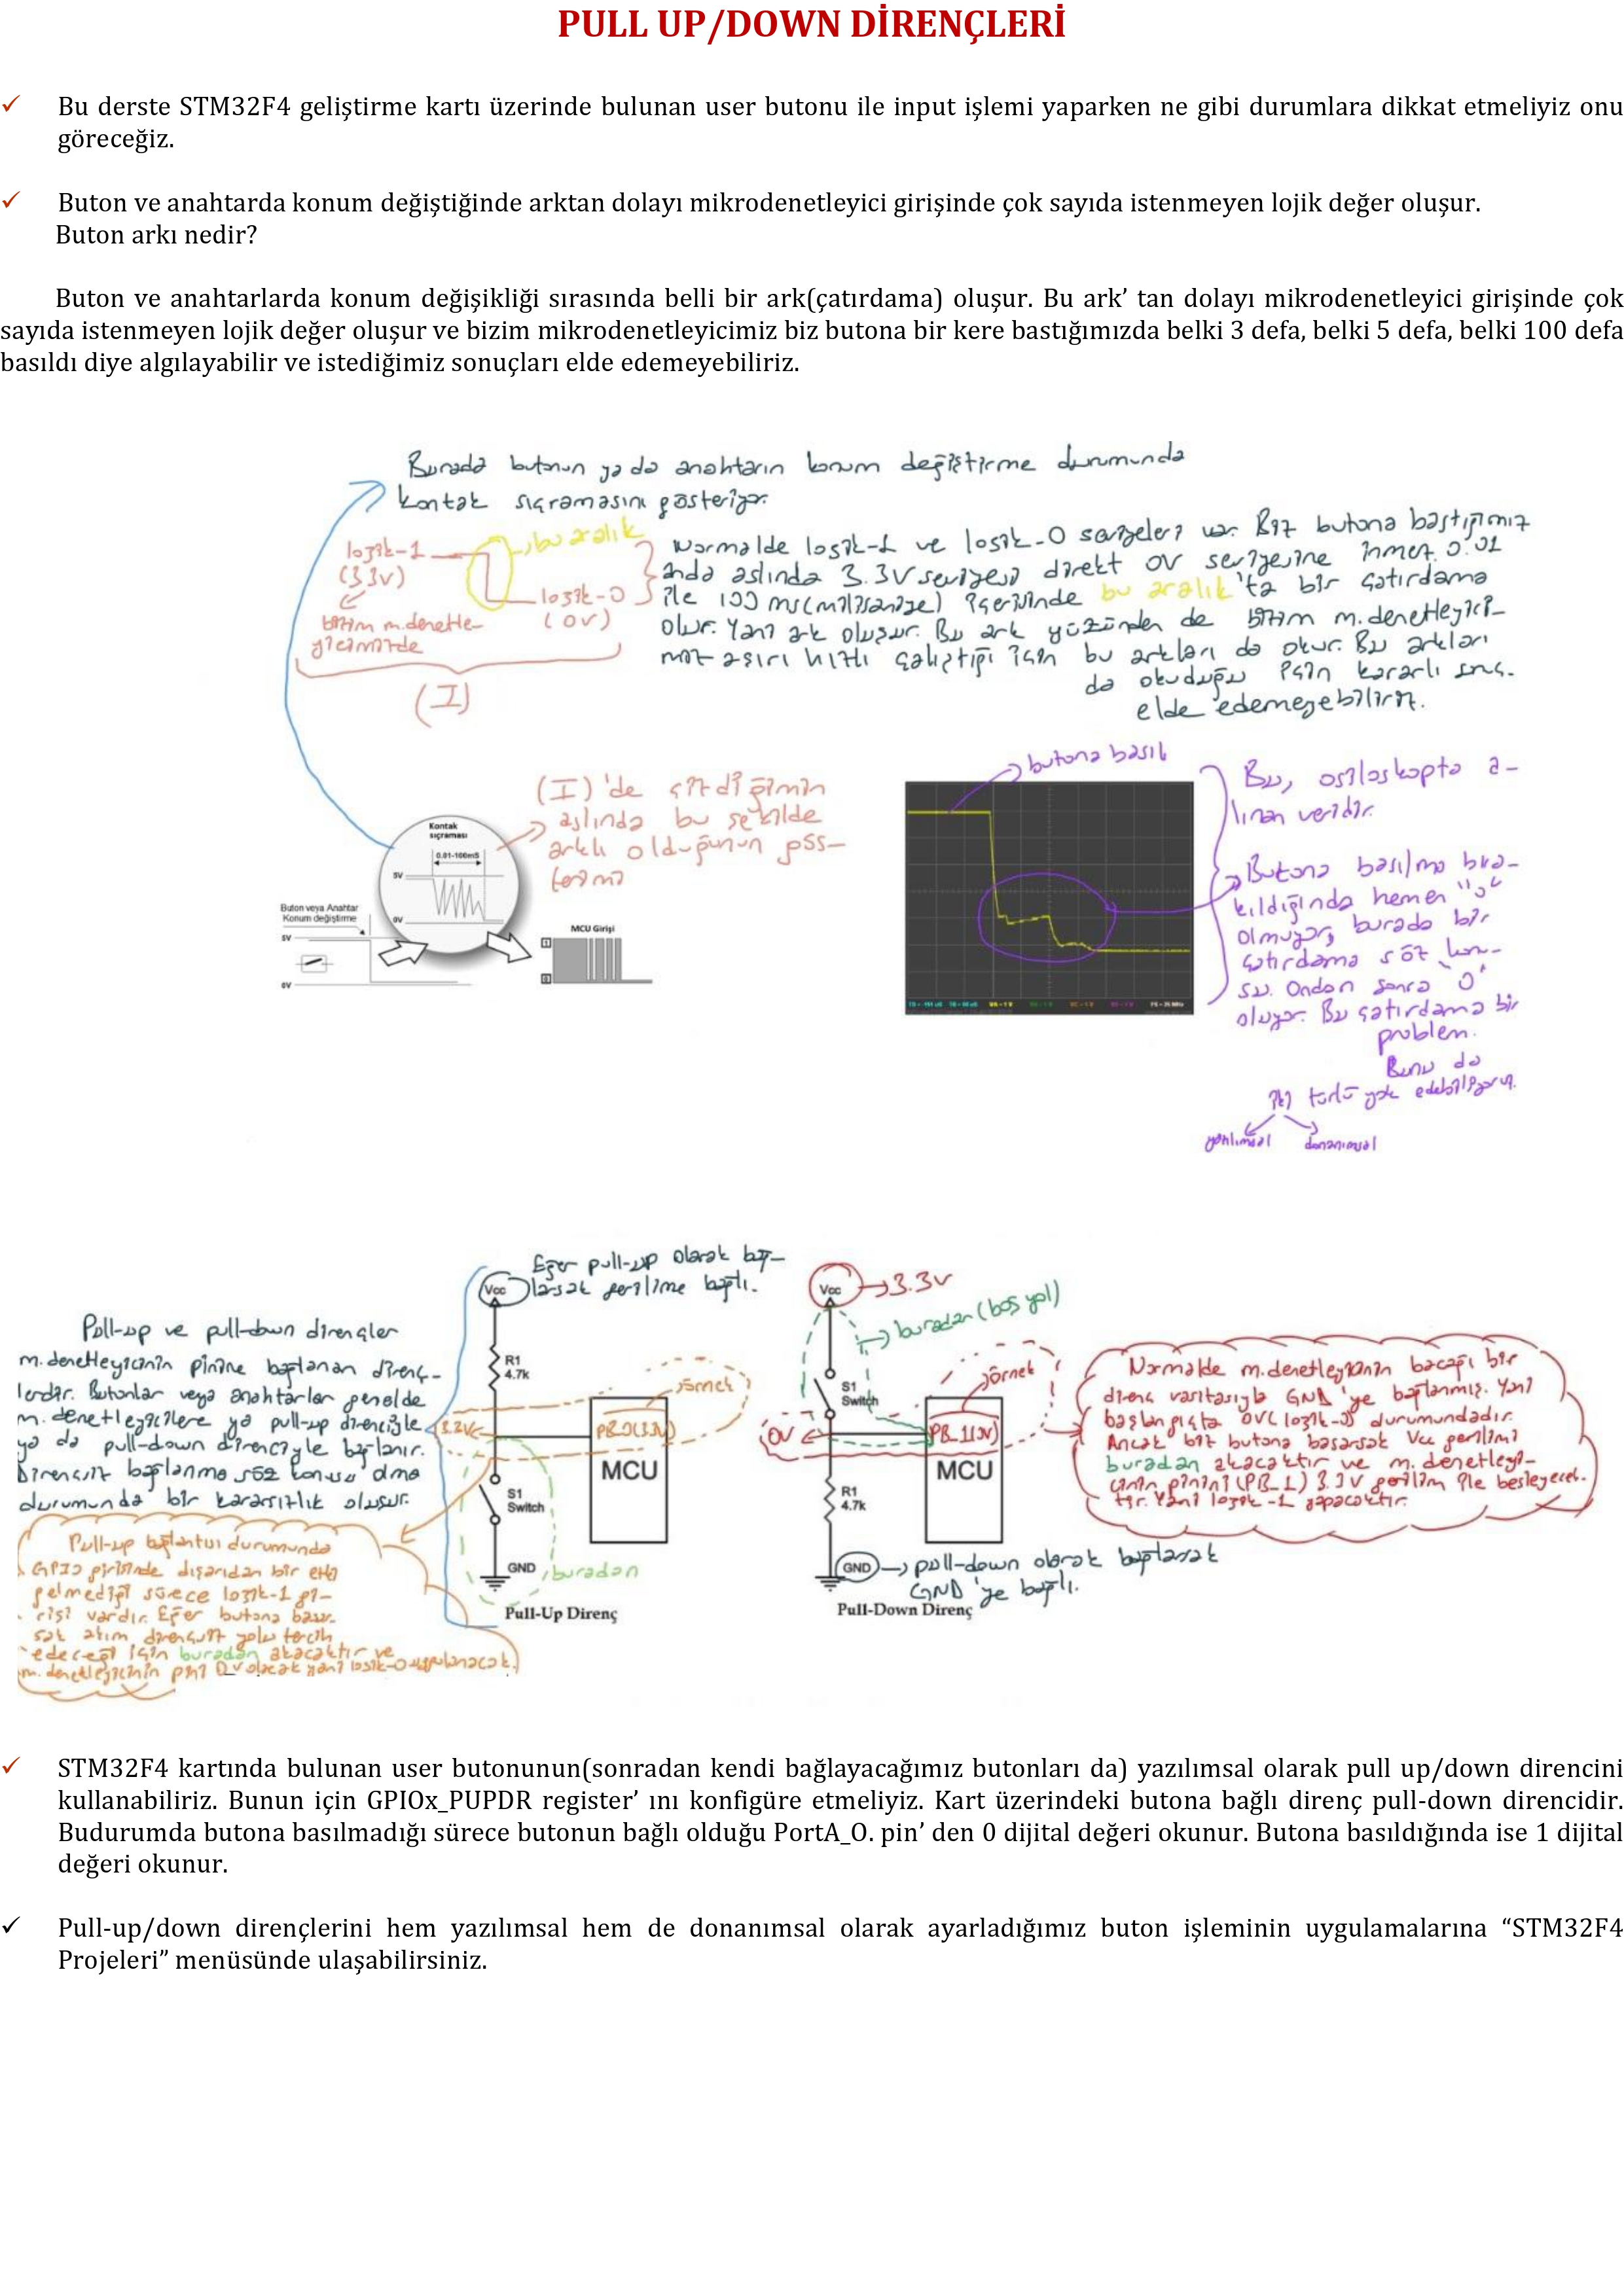 PULL UP/DOWN DİRENÇLERİ
✓ Bu derste STM32F4 geliştirme kartı üzerinde bulunan user butonu ile input işlemi yaparken ne gibi durumlara dikkat etmeliyiz onu
göreceğiz.
✓ Buton ve anahtarda konum değiştiğinde arktan dolayı mikrodenetleyici girişinde çok sayıda istenmeyen lojik değer oluşur.
Buton arkı nedir?
Buton ve anahtarlarda konum değişikliği sırasında belli bir ark(çatırdama) oluşur. Bu ark’ tan dolayı mikrodenetleyici girişinde çok
sayıda istenmeyen lojik değer oluşur ve bizim mikrodenetleyicimiz biz butona bir kere bastığımızda belki 3 defa, belki 5 defa, belki 100 defa
basıldı diye algılayabilir ve istediğimiz sonuçları elde edemeyebiliriz.
Burada butonun ya da anahtarın konum değiştirme durumunda
kontak sıçramasını gösteriyor.
lojik-1
(3.3V)
bizim m.denetle-
yicimizde
→bu aralık
lojik-0
(0V)
(I)
Normalde lojik-1 ve lojik-0 seviyeleri var. Biz butona bastığımız
anda aslında 3.3V seviyesi direkt 0V seviyesine inmez. 0.01
ile 100 ms(milisaniye) içerisinde bu aralık'ta bir çatırdama
olur. Yani ark oluşur. Bu ark yüzünden de bizim m.denetleyici-
miz aşırı hızlı çalıştığı için bu arkları da okur. Bu arkları
da okuduğu için kararlı sonç.
elde edemeyebiliriz.
(I)'de çizdiğimin
aslında bu şekilde
arklı olduğunun gös-
terimi
Kontak
sıçraması
0.01-100mS
5V
0V
Buton veya Anahtar
Konum değiştirme
5V
0V
MCU Girişi
1
0
butona basılı
Bu, osiloskopta a-
lınan veridir.
Butona basılma bıra-
kıldığında hemen "0"
olmuyor, burada bir
çatırdama söz konu-
su. Ondan sonra "0"
oluyor. Bu çatırdama bir
problem.
Bunu da
iki türlü yok edebiliyoruz.
yazılımsal donanımsal
Eğer pull-up olarak bağ-
larsak gerilime bağlı.
Vcc
R1
4.7k
3.2V
PB_0(3.3V)
örnek
MCU
S1
Switch
GND
buradan
Pull-Up Direnç
Pull-up ve pull-down dirençler
m.denetleyicinin pinine bağlanan direnç-
lerdir. Butonlar veya anahtarlar genelde
m.denetleyicilere ya pull-up direnciyle
ya da pull-down direnciyle bağlanır.
Dirençsiz bağlanma söz konusu olma
durumunda bir kararsızlık oluşur.
Pull-up bağlantısı durumunda
GPIO pininde dışarıdan bir etki
gelmediği sürece lojik-1 gi-
rişi vardır. Eğer butona basar-
sak akım dirençsiz yolu tercih
edeceği için buradan akacaktır ve
m.denetleyicinin pini 0V olacak yani lojik-0 uygulanacak.
Vcc
→3.3V
buradan (boş yol)
S1
Switch
0V
PB_1(0V)
örnek
MCU
R1
4.7k
GND → pull-down olarak bağlarsak
GND'ye bağlı.
Pull-Down Direnç
Normalde m.denetleyicinin bacağı bir
direnç vasıtasıyla GND'ye bağlanmış. Yani
başlangıçta 0V(lojik-0) durumundadır.
Ancak biz butona basarsak Vcc gerilimi
buradan akacaktır ve m.denetleyi-
cinin pinini (PB_1) 3.3V gerilim ile besleyecek-
tir. Yani lojik-1 yapacaktır.
✓ STM32F4 kartında bulunan user butonunun(sonradan kendi bağlayacağımız butonları da) yazılımsal olarak pull up/down direncini
kullanabiliriz. Bunun için GPIOx_PUPDR register’ ını konfigüre etmeliyiz. Kart üzerindeki butona bağlı direnç pull-down direncidir.
Budurumda butona basılmadığı sürece butonun bağlı olduğu PortA_O. pin’ den 0 dijital değeri okunur. Butona basıldığında ise 1 dijital
değeri okunur.
✓ Pull-up/down dirençlerini hem yazılımsal hem de donanımsal olarak ayarladığımız buton işleminin uygulamalarına “STM32F4
Projeleri” menüsünde ulaşabilirsiniz.